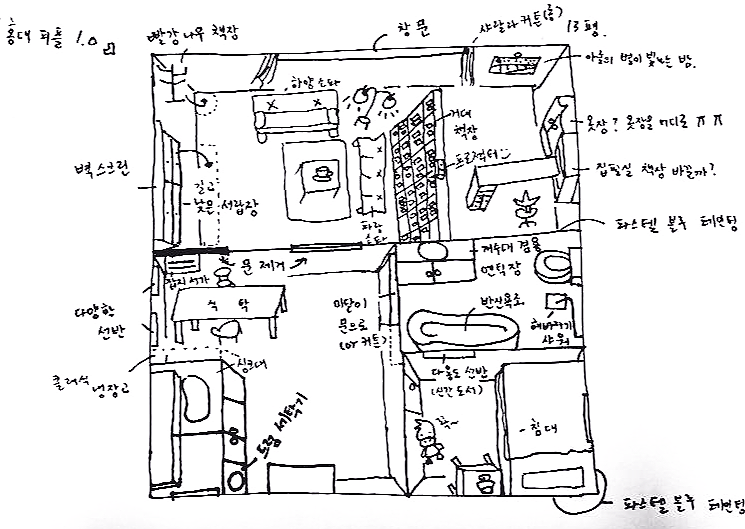 홍대 피플 1.0
빨강 나무 책장
창문
샤랄라 커튼(롱)
13평.
마음의 별이 빛나는 밤.
하얀 소파
거대
책장
프로젝터
옷장? 옷장을 어디로 ㅠㅠ
집필실 책장 바꿀까?
벽스크린
길고
낮은 서랍장
파랑
소파
파스텔 블루 페인팅
문 제거
잡지서가
식탁
다양한
선반
미닫이
문으로
(or 커튼)
세수대 겸용
앤틱장
반신욕조.
해바라기
샤워
다용도 선반
(신간 도서)
클래식 냉장고
싱크대
드럼 세탁기
침대
파스텔 블루 페인팅